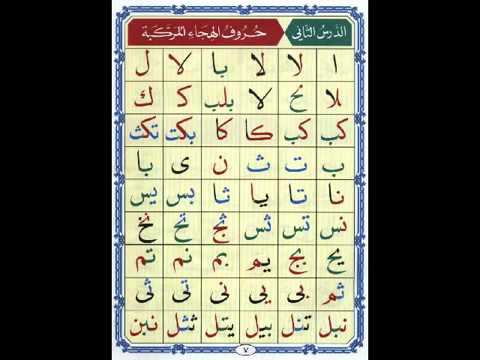 الدَّرْسُ الثَّانِى
حُرُوفُ الهِجَاءِ المُرَكَّبَة
ا لا لا با لا ل
لا لا بلب ك ك
كب كب كا كا بكت تكث
ب ت ث ن ى با
نا تا يا ثا بس يس
نس تس ثس ثج تح نخ
يح بج يم بم نم تم
ثم بى يى نى تى ثى
نبل تنل بيل يتل ثثل نبن
٧